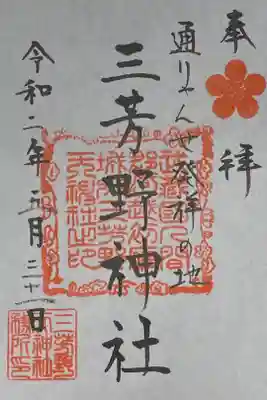 奉拝
通りゃんせ発祥の地
三芳野神社
令和二年五月三十一日